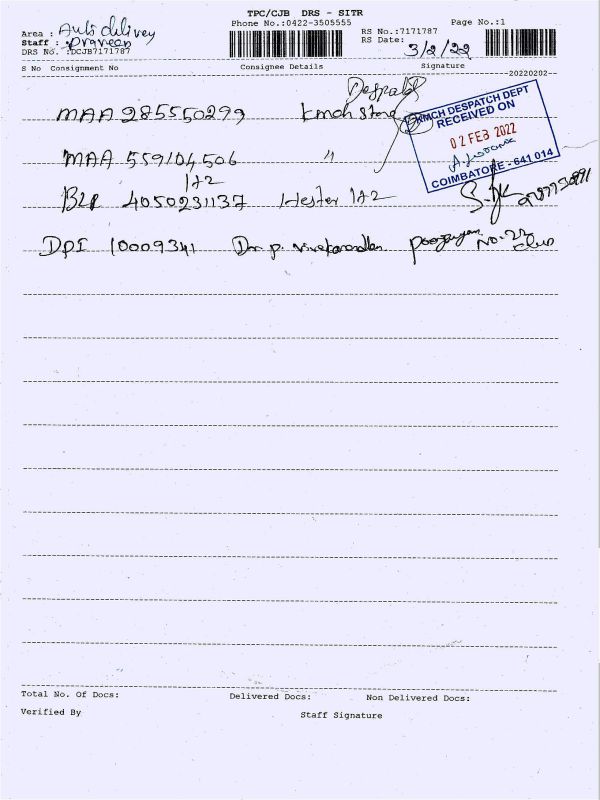 TPC/CJB DRS - SITR
Phone No.:0422-3505555
Page No.:1
Area : Auto delivey
Staff : Praveen
DRS No. :DCJB7171787
RS No.:7171787
RS Date: 3/2/22
S No Consignment No Consignee Details Signature
--20220202--
Despatch
MAA 285550299 kmch store
KMCH DESPATCH DEPT
RECEIVED ON
02 FEB 2022
COIMBATORE - 641 014
MAA 559104506 "
1/2
BLR 4050231137 Hester 1/2
DPI 10009341 Dr. p. No. 22
Total No. Of Docs: Delivered Docs: Non Delivered Docs:
Verified By Staff Signature